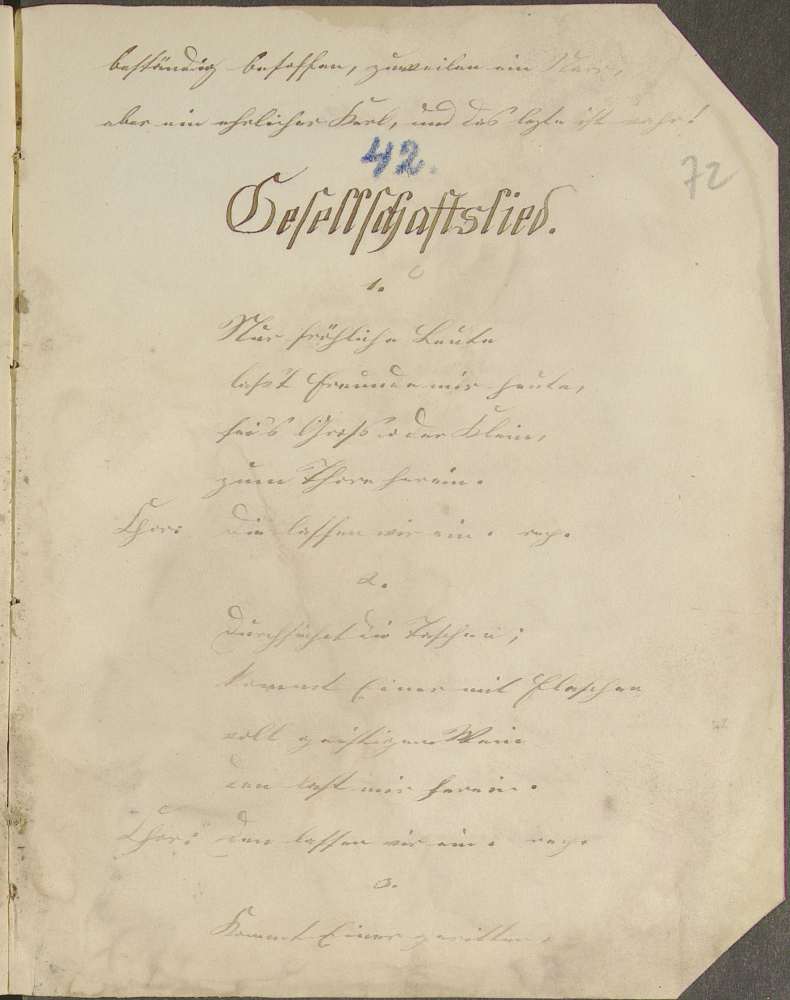 beständig besoffen, zuweilen ein Narr,
aber ein ehrlicher Kerl, und das lezte ist wahr!
42.
72
Gesellschaftslied.
1.
Nur fröhliche Leute
laßt Freunde mir heute,
sei's Groß oder Klein,
zum Thore herein.
Chor: Die lassen wir ein. rep.
2.
Durchsuchet die Taschen;
kommt Einer mit Flaschen
voll geistigen Wein
den laßt mir herein.
Chor: den lassen wir ein. rep.
3.
Kommt Einer geritten,